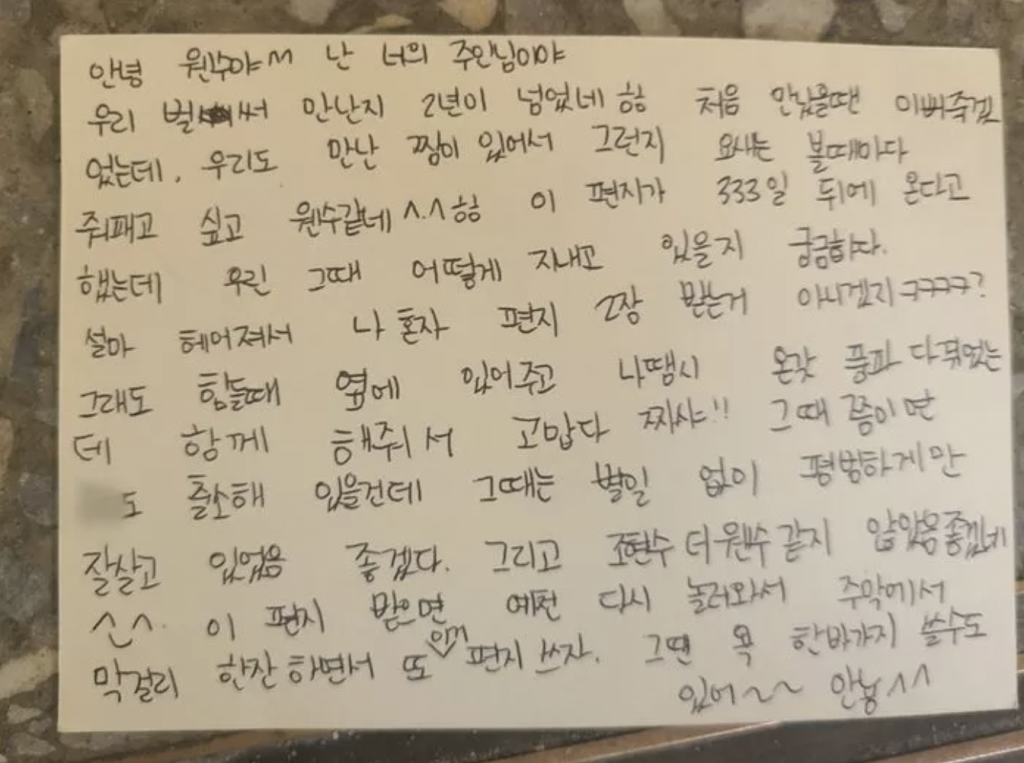 안녕 원수야^^ 난 너의 주인님이야
우리 벌써 만난지 2년이 넘었네 힝 처음 만났을땐 이뻐죽겠
었는데, 우리도 만난 찜이 있어서 그런지 요새는 볼때마다
줘패고 싶고 원수같네 ^.^ 힝 이 편지가 333일 뒤에 온다고
했는데 우린 그때 어떻게 지내고 있을지 궁금하다.
설마 헤어져서 나 혼자 편지 2장 받는거 아니겠지ㅋㅋㅋㅋ?
그래도 힘들때 옆에 있어주고 나땜시 온갖 풍파 다겪었는
데 함께 해줘서 고맙다 짜샤!! 그때 쯤이면
도 출소해 있을건데 그때는 별일 없이 평범하게만
잘살고 있었음 좋겠다. 그리고 조현수 더 원수 같지 않았음좋겠네
^^. 이 편지 받으면 예전 다시 놀러와서 주막에서
막걸리 한잔 하면서 또 편지 쓰자. 그땐 욕 한바가지 쓸수도
있어~~ 안뇽^^